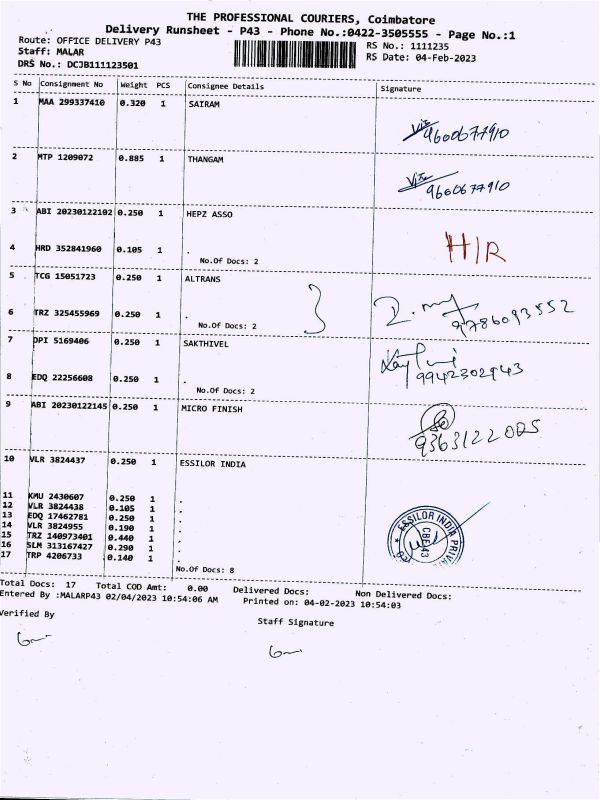 THE PROFESSIONAL COURIERS, Coimbatore
Delivery Runsheet - P43 - Phone No.:0422-3505555 - Page No.:1
Route: OFFICE DELIVERY P43 RS No.: 1111235
Staff: MALAR RS Date: 04-Feb-2023
DRS No.: DCJB111123501
S No Consignment No Weight PCS Consignee Details Signature
1 MAA 299337410 0.320 1 SAIRAM
9600677910
2 MTP 1209072 0.885 1 THANGAM
9600677910
3 ABI 20230122102 0.250 1 HEPZ ASSO
H/R
4 HRD 352841960 0.105 1 .
No.Of Docs: 2
5 TCG 15051723 0.250 1 ALTRANS
9786093552
6 TRZ 325455969 0.250 1 .
No.Of Docs: 2
7 DPI 5169406 0.250 1 SAKTHIVEL
9942302943
8 EDQ 22256608 0.250 1 .
No.Of Docs: 2
9 ABI 20230122145 0.250 1 MICRO FINISH
9363122005
10 VLR 3824437 0.250 1 ESSILOR INDIA
11 KMU 2430607 0.250 1 .
12 VLR 3824438 0.105 1 .
13 EDQ 17462781 0.250 1 .
14 VLR 3824955 0.190 1 .
15 TRZ 140973401 0.440 1 .
16 SLM 313167427 0.290 1 .
17 TRP 4206733 0.140 1 .
ESSILOR INDIA PRIVA
CBE-43
No.Of Docs: 8
Total Docs: 17 Total COD Amt: 0.00 Delivered Docs: Non Delivered Docs:
Entered By :MALARP43 02/04/2023 10:54:06 AM Printed on: 04-02-2023 10:54:03
Verified By Staff Signature